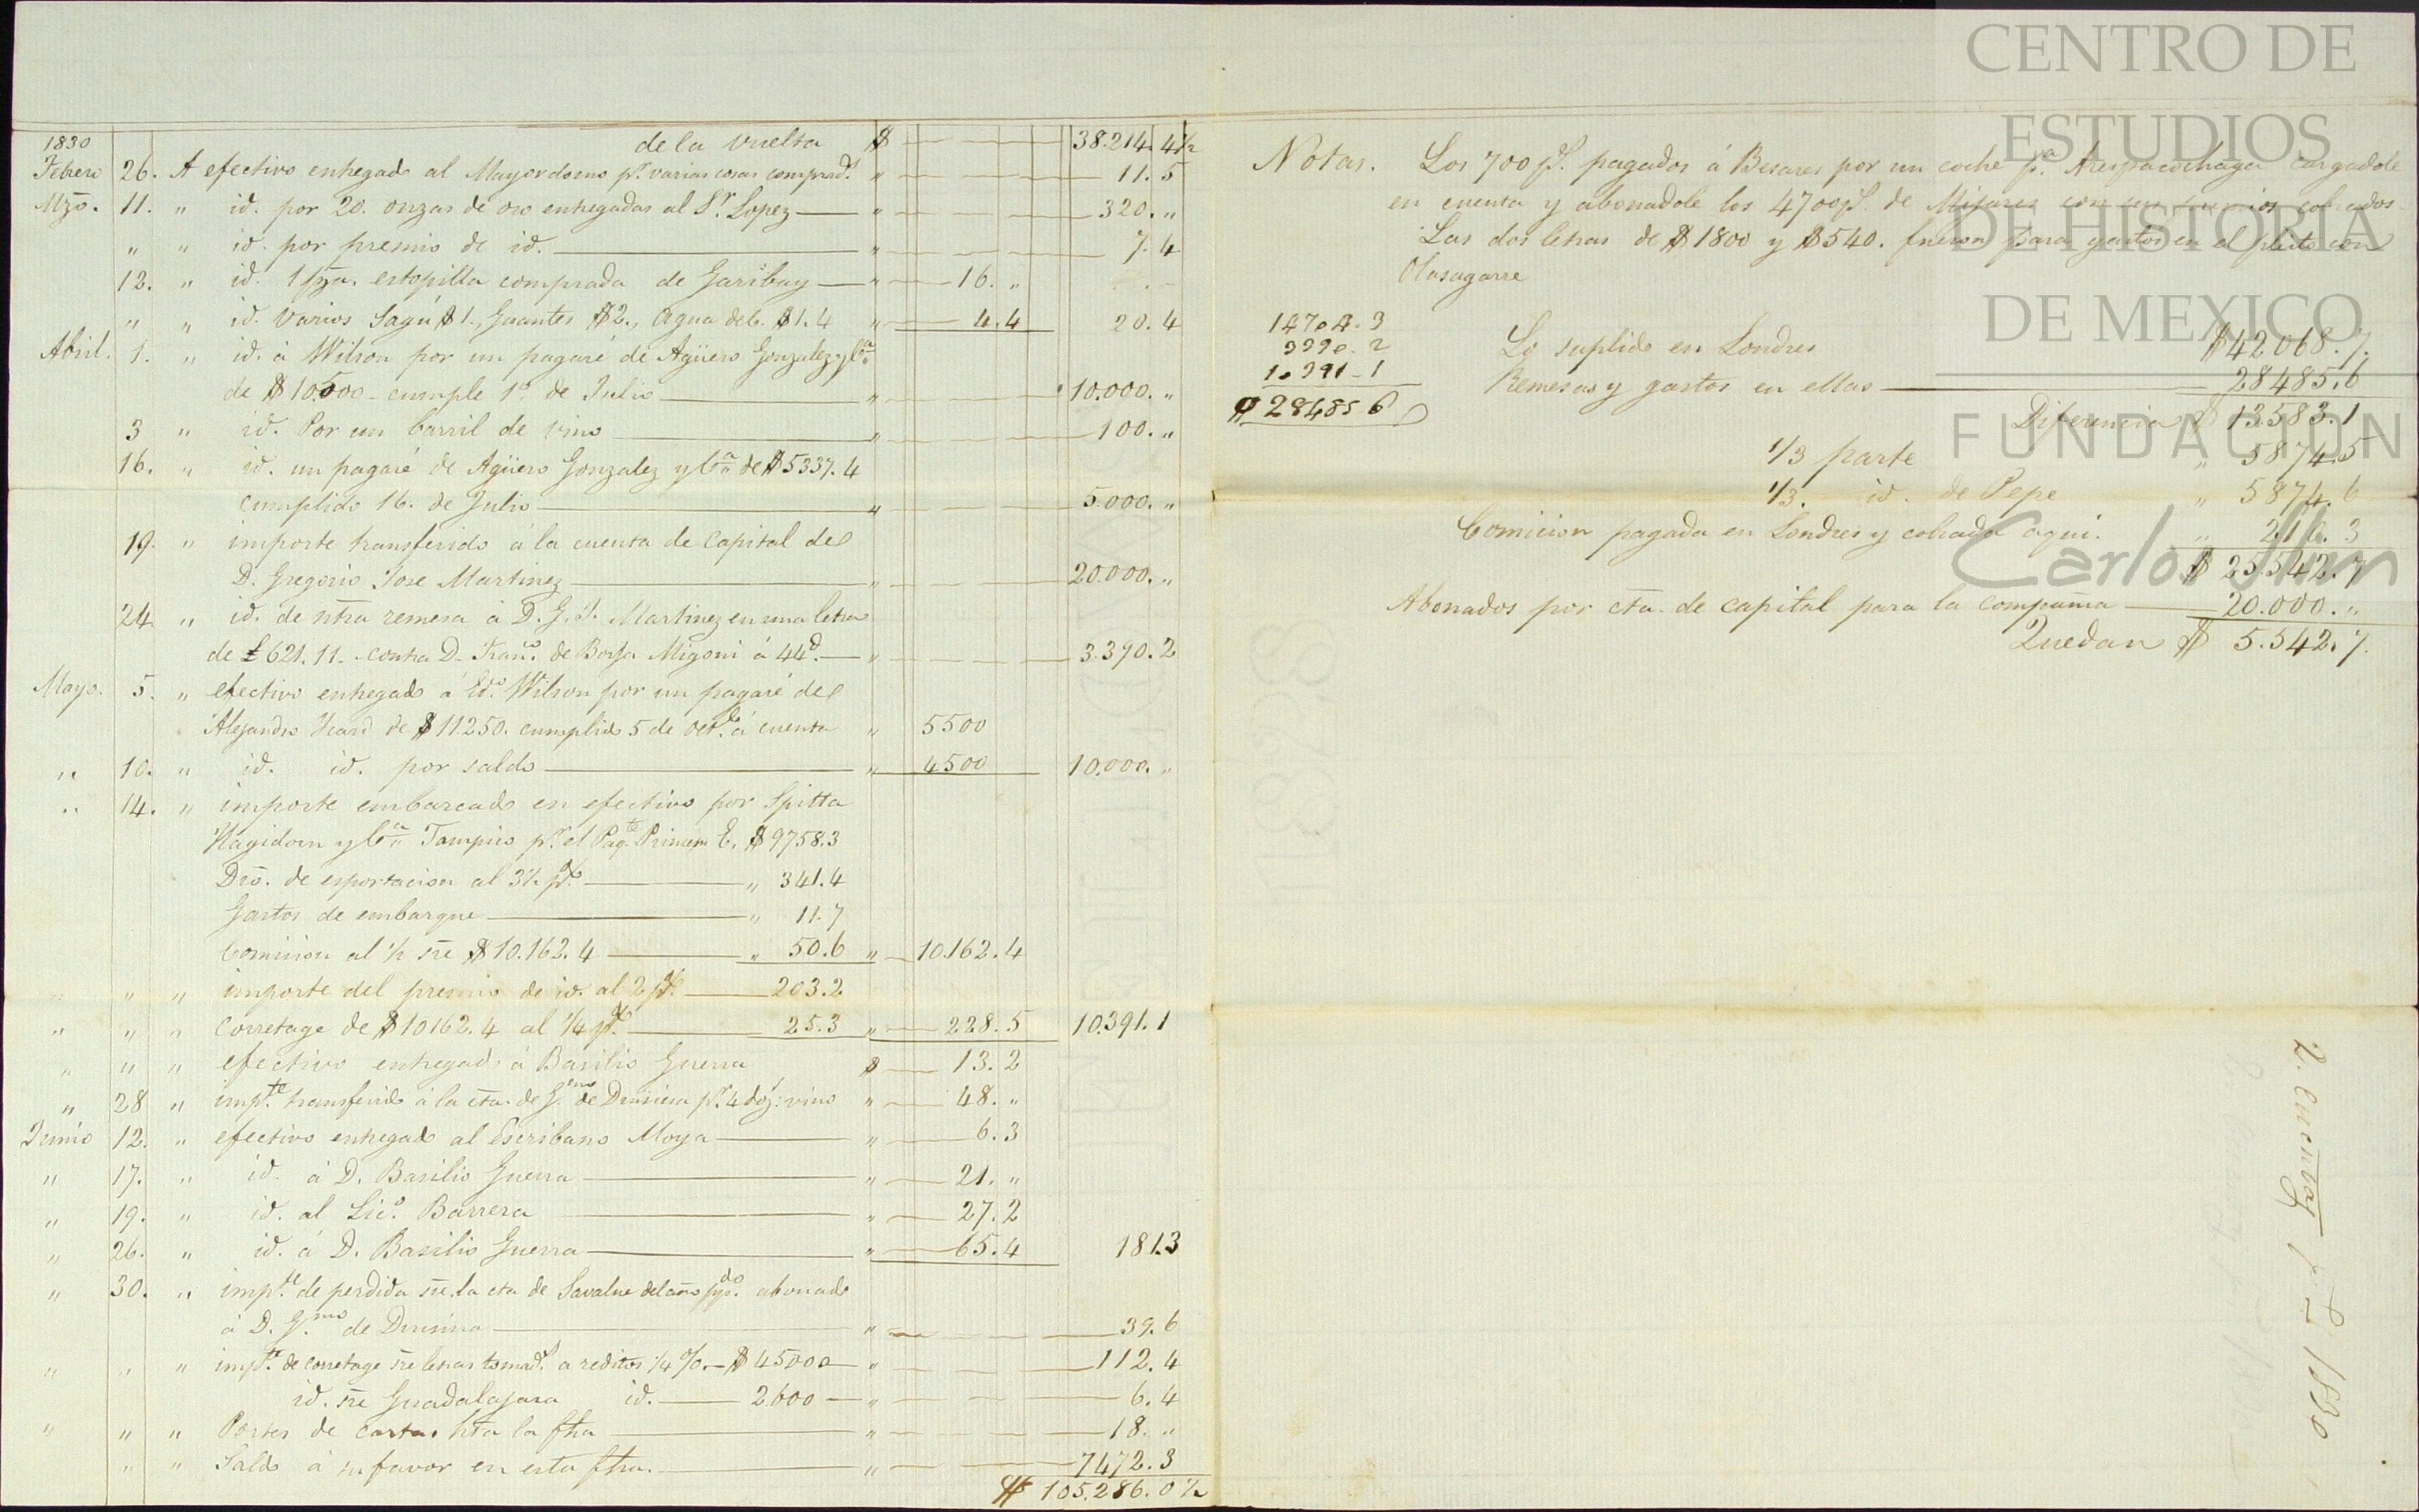 1830 de la vuelta $ 38.214. 4½
Febrero 26. A efectivo entregado al Mayordomo pr. varias cosas comprads. " 11. 5
Mzo. 11. " id. por 20. onzas de oro entregadas al Sr. Lopez " 320. "
" " id. por premio de id. " 7. 4
12. " id. 1 pza. estopilla comprada de Garibay " 16. "
" " id. varios Sagú $1., Guantes $2., Agua de C. $1.4 " 4.4 20. 4
Abril. 1. " id. á Wilson por un pagaré de Agüero Gonzalez y Ca.
de $10500 cumple 1o. de Julio " 10.000. "
3 " id. Por un barril de vino " 100. "
16. " id. un pagaré de Agüero Gonzalez y Ca. de $5337. 4
cumplido 16. de Julio " 5.000. "
19. " importe transferido á la cuenta de Capital de
D. Gregorio Jose Martinez " 20.000. "
24. " id. de ntra remesa á D. G. J. Martinez en una letra
de £621. 11. contra D. Franco. de Borja Migoni á 44d. " 3.390. 2
Mayo. 5. " efectivo entregado á Edo. Wilson por un pagaré de
Alejandro de $11250. cumplido 5 de Octe. á cuenta " 5500
" 10. " id. id. por saldo " 4500 10.000. "
" 14. " importe embarcado en efectivo por Spitta
Hagidorn y Ca. Tampico pr. el Paqte. E. $9758.3
Dro. de esportacion al 3½ p%. " 341.4
Gastos de embarque " 11.7
Comision al ½ sre $10.162. 4 " 50.6 " 10.162. 4
" " " importe del premio de id. al 2 p%. 203.2
" " " Corretage de $10162. 4 al ¼ p% 25.3 " 228. 5 10.391. 1
" " " efectivo entregado á Basilio Guerra $ 13. 2
" 28 " impte. transferido á la cta. de Gmo. de Drusina pr. 4 doz: vino " 48. "
Junio 12. " efectivo entregado al Escribano Moya " 6. 3
" 17. " id. á D. Basilio Guerra " 21. "
" 19. " id. al Lico. Barrera " 27. 2
" 26. " id. á D. Basilio Guerra " 65. 4 181.3
" 30. " impte. de perdida sre. la cta de del año abonado
á D. Gmo. de Drusina " 39. 6
" " " impte. de corretage sre letras tomads. a reditos ¼%. $45000 " 112. 4
id. sre Guadalajara id. 2.600 " 6. 4
" " " Portes de cartas hta la fha " 18. "
" " Saldo á su favor en esta fha. " 7472. 3
$ 105.286. 0½
Notas. Los 700 ps. pagados á Besares por un coche pa. Arespacochaga cargadole
en cuenta y abonadole los 4700 ps. de Mijares con sus premios cobrados.
Las dos letras de $1800 y $540. fueron para gastos en el pleito con
Olasagarre
14704. 3
3390. 2
10391 - 1
$ 28485 6
Lo suplido en Londres $42068. 7.
Remesas y gastos en ellas 28485. 6
Diferencia $ 13583. 1
1/3 parte " 5874. 5
1/3. id. de Pepe " 5874. 6
Comicion pagada en Londres y cobrada aqui. " 210. 3
$ 25.542. 7
Abonados por cta. de capital para la compañia 20.000. "
Quedan $ 5.542. 7.
2. Cuentas 1830
CENTRO DE
ESTUDIOS
DE HISTORIA
DE MEXICO
FUNDACIÓN
Carlos Slim